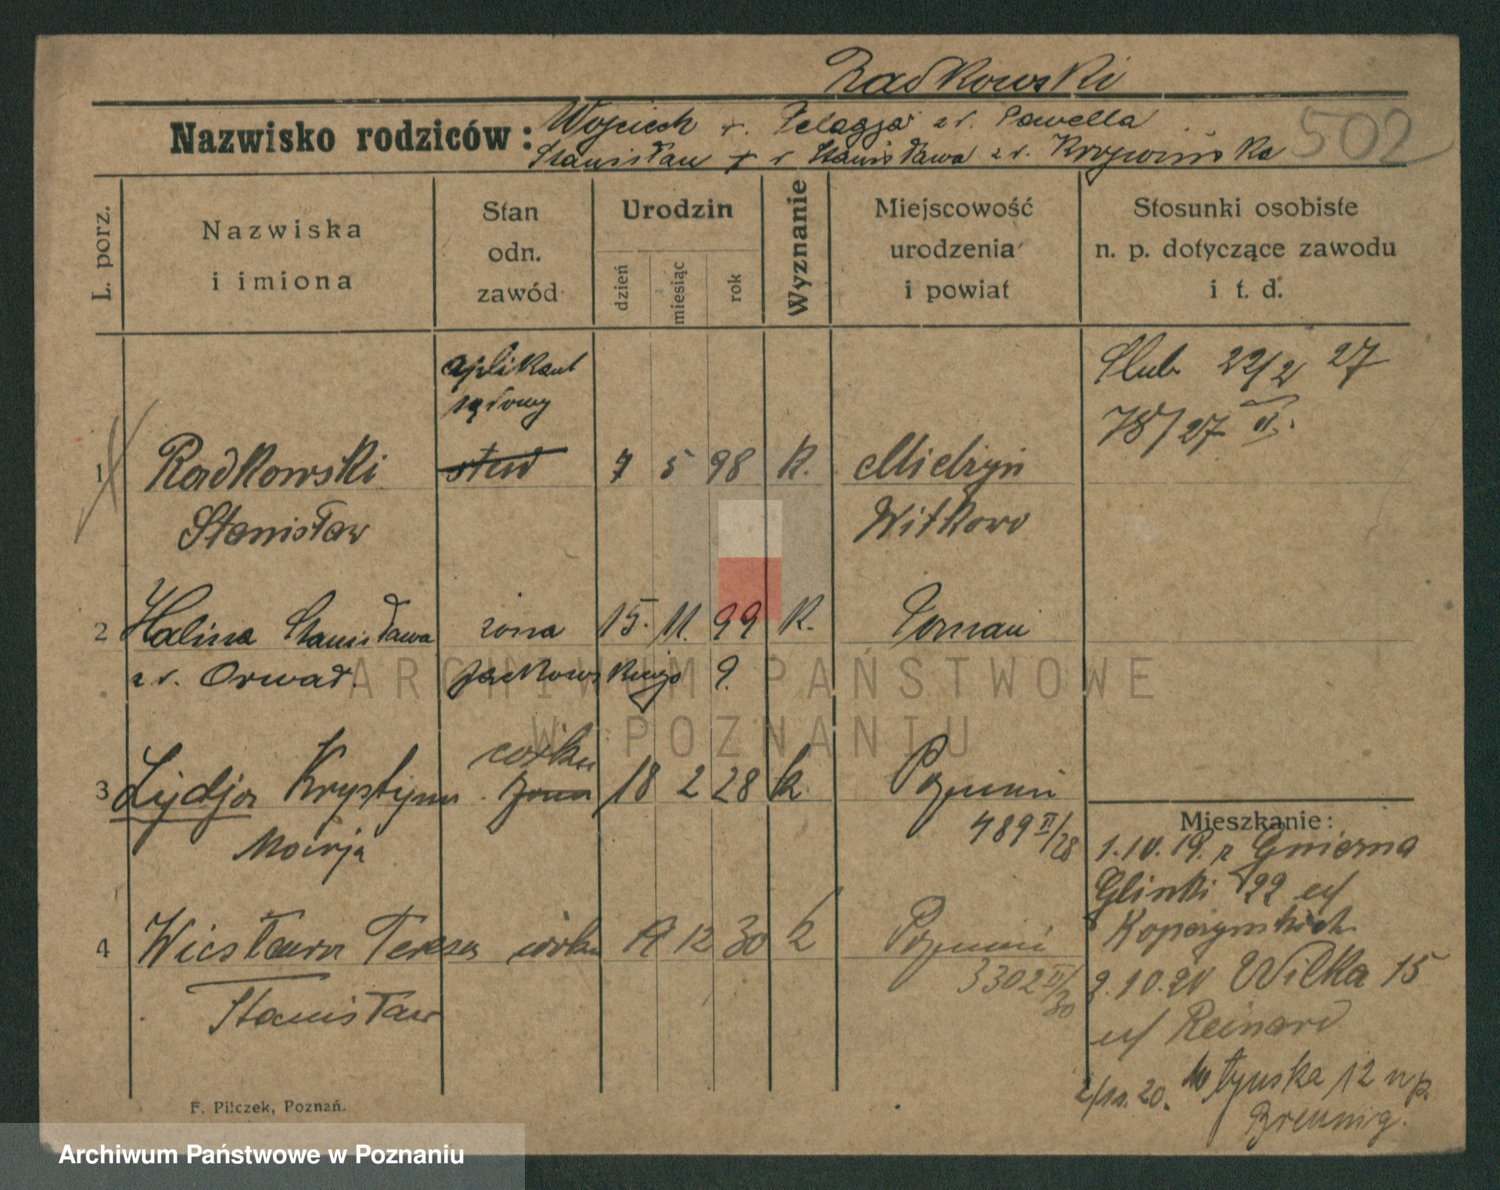 Radkowski
Nazwisko rodziców: Wojciech + Pelagja z d. Pawella
Stanisław + i Stanisława z d. Krzywińska
502
L. porz.
Nazwiska
i imiona
Stan
odn.
zawód
Urodzin
dzień
miesiąc
rok
Wyznanie
Miejscowość
urodzenia
i powiat
Stosunki osobiste
n. p. dotyczące zawodu
i t. d.
aplikant
sądowy
Ślub 22/2 27
78/27 II.
1 Radkowski stud 7 5 98 K. Mielżyn
Stanisław Witkowo
2 Halina Stanisława żona 15. 11. 99 K. Poznań
z d. Orwad. Jackowskiego 9.
córka
3 Lydja Krystyna żona 18 2 28 k. Poznań
Marja 489 II/28
Mieszkanie:
1.10.19. z Gniezna
Glinki 22 u/
Koperymskich
4 Wiesława Teresa córka 12 30 k Poznań
Stanisław 3302 II/30
2.10.20 Wilka 15
u/ Reinard
2/10.20. 12 n p.
Brennig.
F. Pilczek, Poznań.
ARCHIWUM PAŃSTWOWE
W POZNANIU
Archiwum Państwowe w Poznaniu